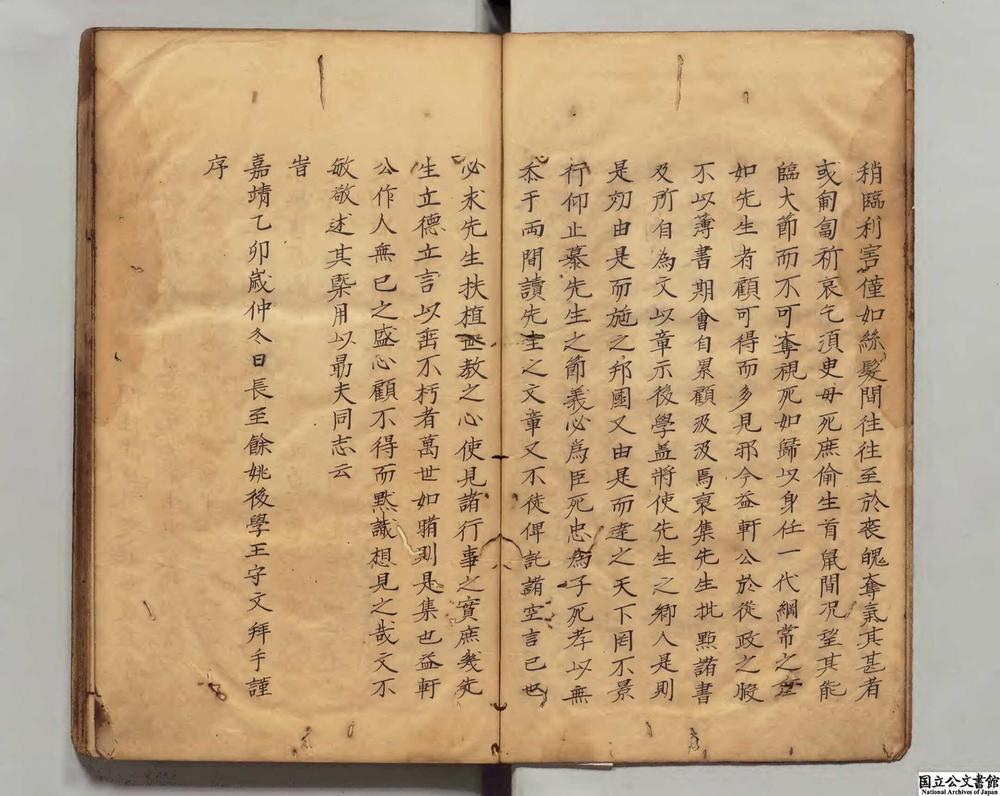 稍臨利害僅如絲髮間往往至於喪魄奪氣其甚者
或匍匐祈哀乞須臾毋死庶偷生首鼠間况望其能
臨大節而不可奪視死如歸以身任一代綱常之
如先生者顧可得而多見邪今益軒公於從政之暇
不以薄書期會自累顧汲汲焉裒集先生批點諸書
及所自為文以章示後學蓋將使先生之鄉人是則
是効由是而施之邦國又由是而達之天下罔不景
行仰止慕先生之節義必爲臣死忠爲子死孝以無
忝于兩間讀先生之文章又不徒俾託諸空言已也
必求先生扶植世教之心使見諸行事之實庶幾先
生立德立言以垂不朽者萬世如
則是集也益軒
公作人無已之盛心顧不得而黙識想見之哉文不
敏敬述其槩用以勗夫同志云
旹
嘉靖乙卯嵗仲冬日長至餘姚後學王守文拜手謹
序
国立公文書館
National Archives of Japan